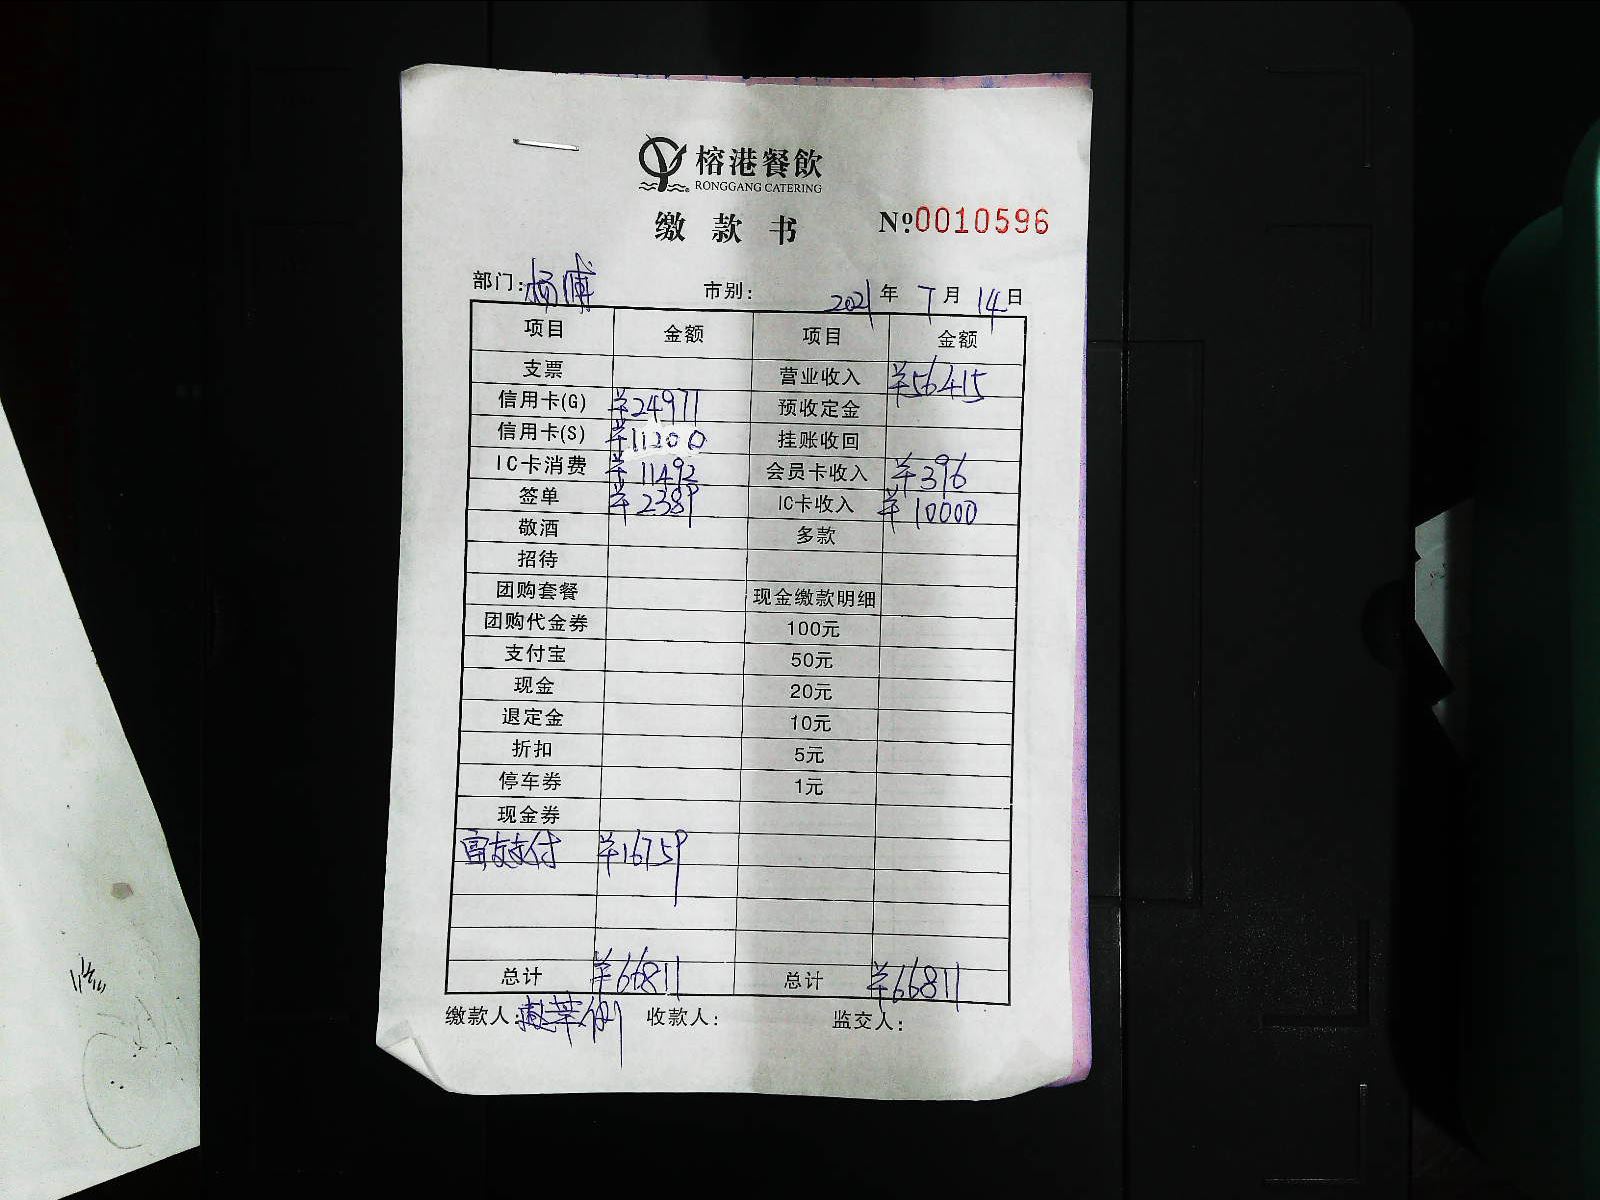 榕港餐飲
RONGGANG CATERING
缴款书 №0010596
部门：杨浦 市别： 2021年7月14日
项目 金额 项目 金额
支票 营业收入 ¥56415
信用卡(G) ¥24971 预收定金
信用卡(S) ¥11200 挂账收回
IC卡消费 ¥11492 会员卡收入 ¥396
签单 ¥2389 IC卡收入 ¥10000
敬酒 多款
招待
团购套餐 现金缴款明细
团购代金券 100元
支付宝 50元
现金 20元
退定金 10元
折扣 5元
停车券 1元
现金券
支付 ¥16759
总计 ¥66811 总计 ¥66811
缴款人： 收款人： 监交人：